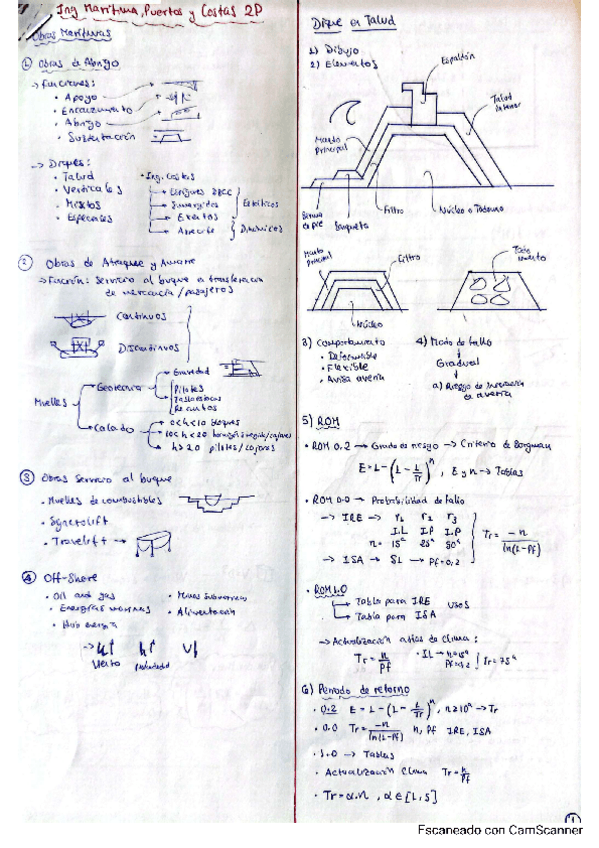 Ing Marítima, Puertos y Costas 2P
Obras Marítimas
① Obras de Abrigo
→ Funciones:
• Apoyo
• Encauzamiento
• Abrigo
• Sustentación
→ Diques:
• Talud
• Verticales
• Mixtos
• Especiales
• Ing. Costas
Sumergidos
Exentos
Arrecife
Estáticos
Dinámicos
② Obras de Atraque y Amarre
→ Función: Servicio al buque en transferencia
de mercancía/pasajeros
Continuos
Discontinuos
Muelles
Geotecnia
Gravedad
Pilotes
Tablestacas
Recintos
Calado
0<h<10 bloques
h>20 pilotes/cajones
③ Obras Servicio al buque
• Muelles de combustibles
• Syncrolift
• Travelift →
④ Off-Shore
• Oil and gas
• Energías marinas
• Minas submarinas
• Alimentación
Viento
profundidad
Dique en Talud
1) Dibujo
2) Elementos
Espaldón
Talud interior
Manto Principal
Berma de pie
Banqueta
Filtro
Núcleo o Todouno
Manto principal
Filtro
Núcleo
3) Comportamiento
• Deformable
• Flexible
• Avisa avería
4) Modo de fallo
Gradual
a) Riesgo de iniciación
de avería
5) ROM
• ROM 0.2 → Grado de riesgo → Criterio de Borgman
E = 1 - (1 - 1/Tr)^n , E y n → Tablas
• ROM 0.0 → Probabilidad de fallo
→ IRE → r1 r2 r3
n = 15ª 25ª 50ª
Tr = -n / ln(1-Pf)
→ ISA → SL → Pf = 0,2
• ROM 1.0
Tabla para IRE
Tabla para ISA
usos
→ Actualización atlas de clima:
Tr = n/Pf
Tr = 75ª
6) Periodo de retorno
• 0.2 E = 1 - (1 - 1/Tr)^n
• 0.0 Tr = -n / ln(1-Pf) n, Pf IRE, ISA
• 1.0 → Tablas
• Actualización Clima Tr = n/Pf
• Tr = α.n , α ∈ [1,5]
1
Escaneado con CamScanner